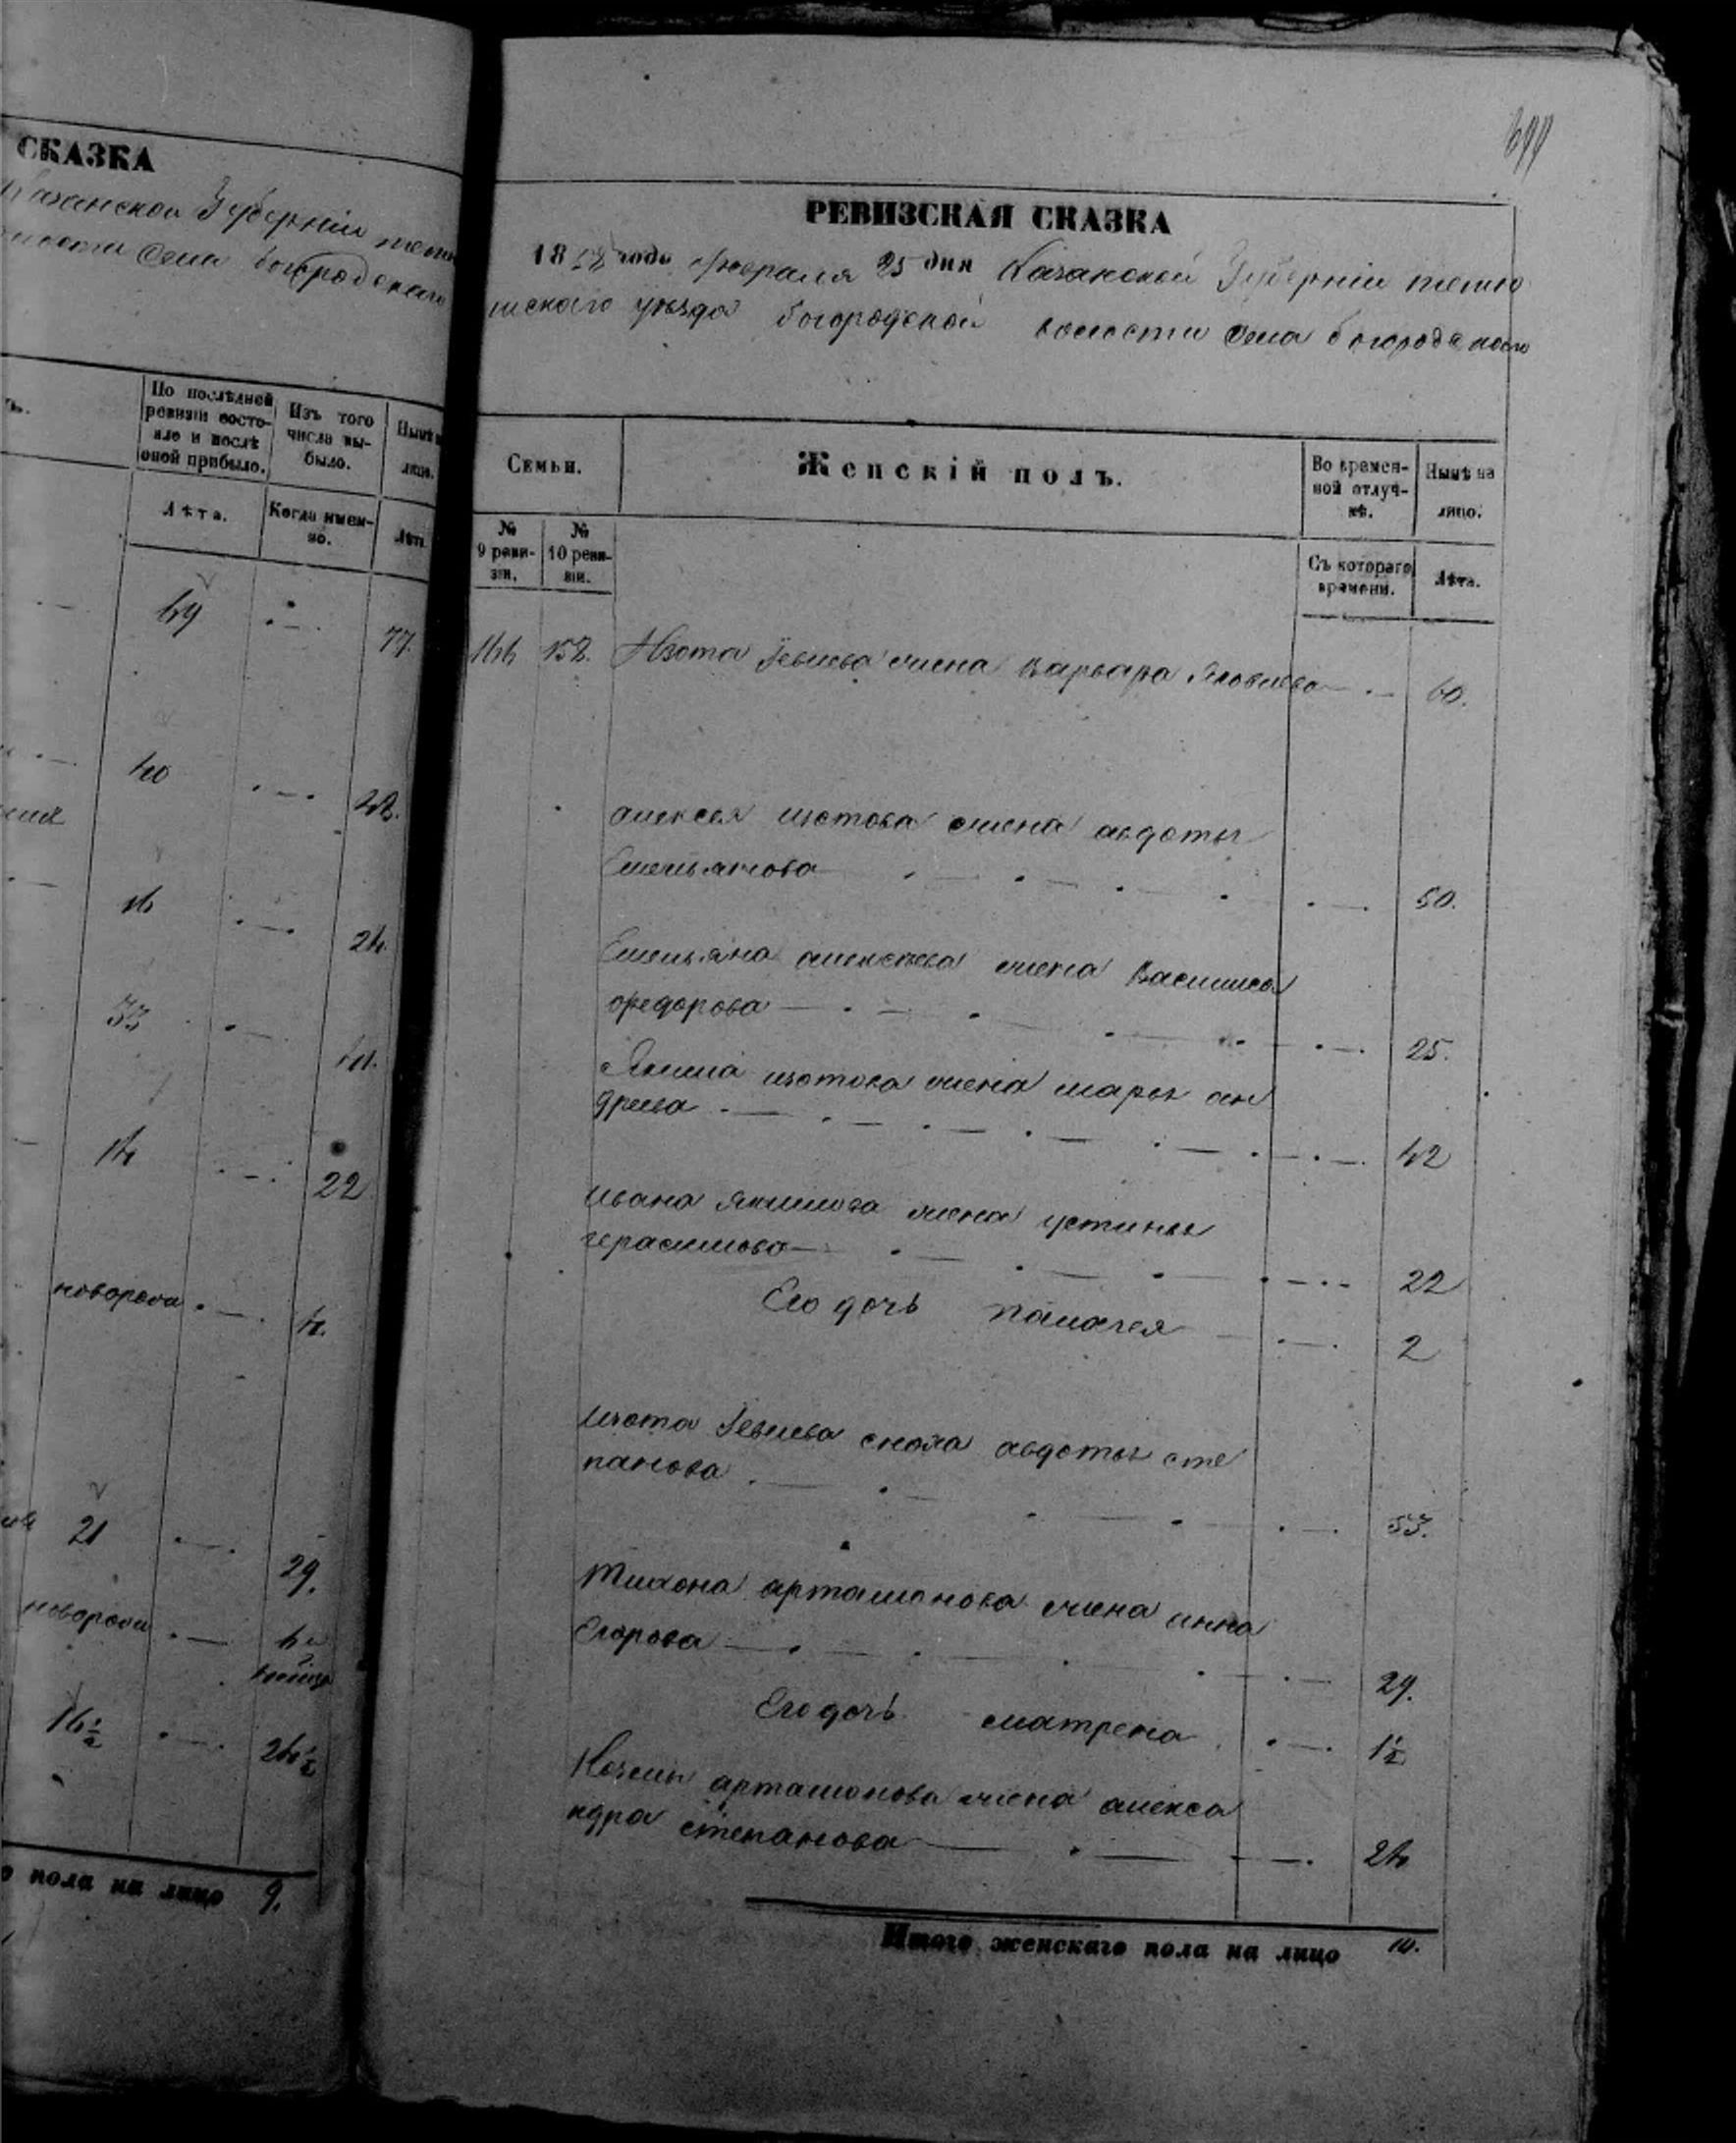 СКАЗКА
Казанской Губерніи тетю
волости Села богородскаго
По послѣдней ревизіи состояло и послѣ оной прибыло.
Изъ того числа выбыло.
Нынѣ
лицо.
Лѣта.
Когда именно.
Лѣта
69
77.
40
48.
16
24.
33
41.
14
22
новорож
4.
21
29.
новорож
16½
24½
пола на лицо 9.
РЕВИЗСКАЯ СКАЗКА
1858 года февраля 25 дня Казанской Губерніи тетю
шскаго уѣзда богородской волости Села богородскаго
Семьи.
Женскій полъ.
Во временной отлучкѣ.
Нынѣ на лицо.
№ 9 ревизіи.
№ 10 ревизіи.
Съ котораго времени.
Лѣта.
152. Изота Іевлева жена варвара Яковлева 60.
алексея изотова жена авдотья
Емельянова 50.
Емельяна алексѣева жена Василиса
федорова 25.
Якима изотова жена марья ан
дреева 42
ивана Якимова жена устинья
герасимова 22
Его дочь палагея 2
изота Іевлева сноха авдотья сте
панова 53.
Тихона артамонова жена анна
Егорова 29.
Его дочь матрена 1½
Козьмы артамонова жена алекса
ндра степанова 24
Итого женскаго пола на лицо 10.